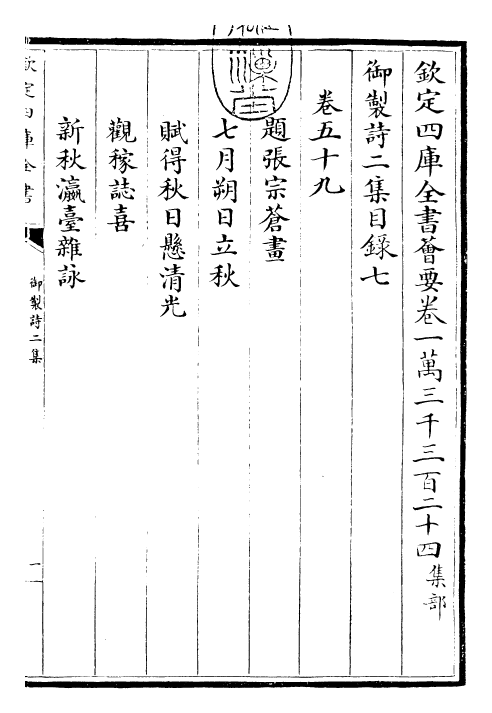 欽定四庫全書薈要卷一萬三千三百二十四集部
御製詩二集目錄七
卷五十九
題張宗蒼畫
七月朔日立秋
賦得秋日懸清光
觀稼誌喜
新秋瀛臺雜詠
欽定四庫全書
御製詩二集
一